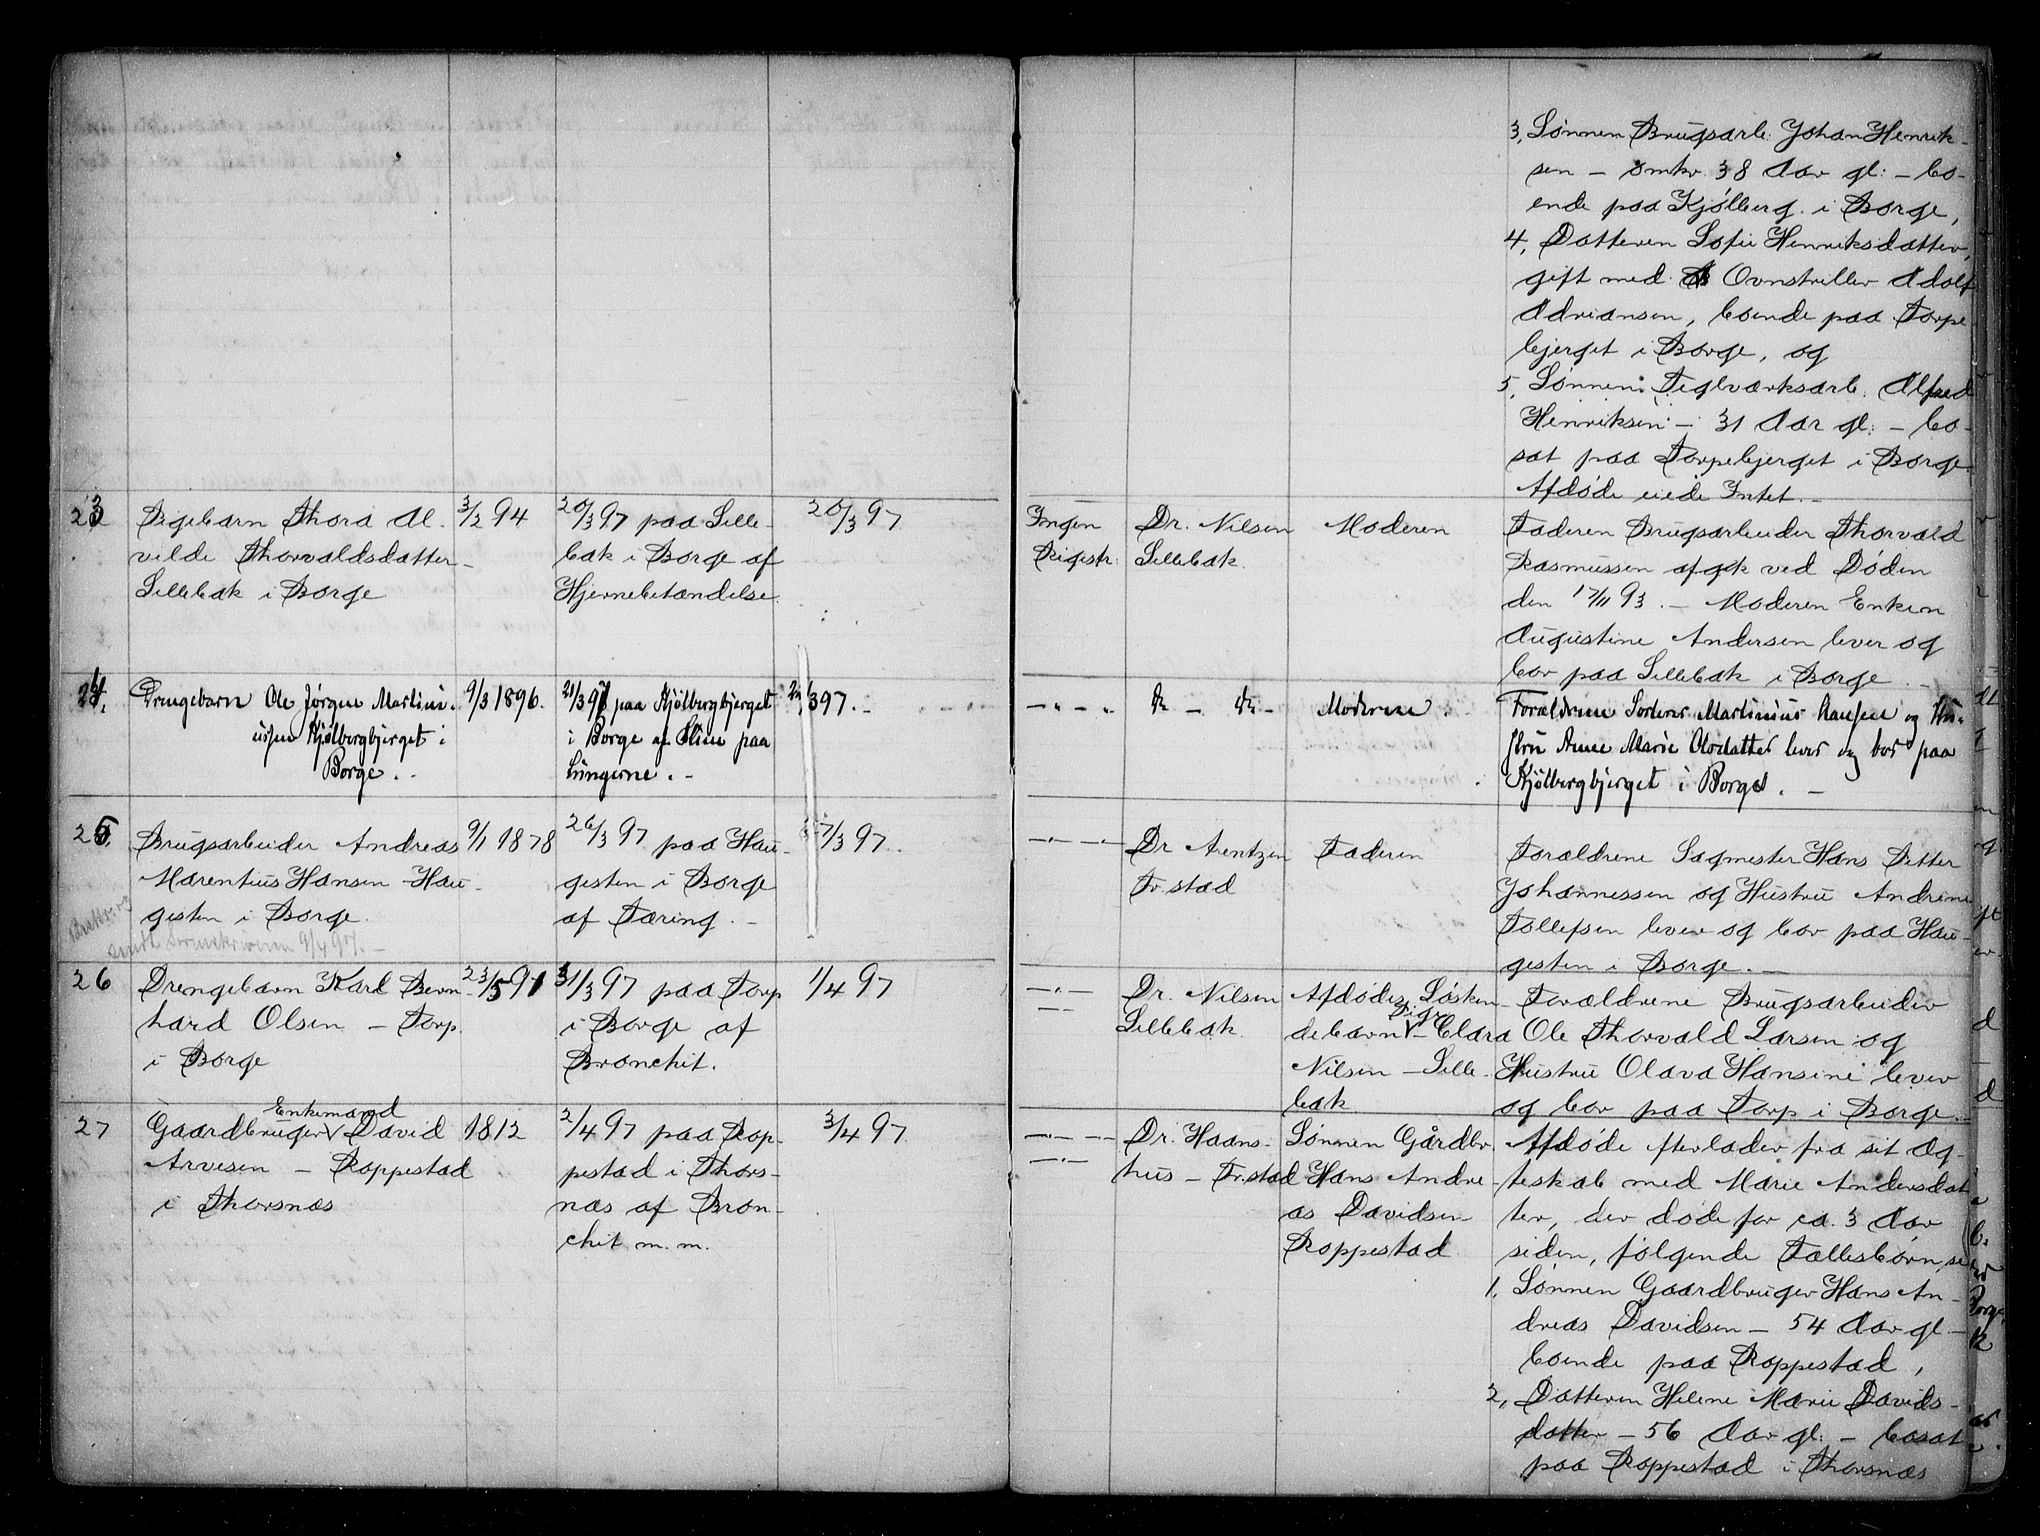 3, Sønnen Brugsarb. Johan Henrik-
sen – omkr. 38 Aar gl: – bo-
ende paa Kjølberg i Borge,
4, Datteren Sofie Henriksdatter,
gift med Ovnstriller Adolf
Adriansen, boende paa Torpe
bjerget i Borge, og
5, Sønnen Teglværksarb. Alfred
Henriksen – 31 Aar gl: – bo-
sat paa Torpebjerget i Borge
Afdøde eiede Intet. –
23 Pigebarn Thora Al-
vilde Thorvaldsdatter –
Lillebak i Borge
3/2 94
20/3 97 paa Lille-
bak i Borge af
Hjernebetændelse
20/3 97
Ingen
Registr:
Dr. Nilsen
Lillebak.
Moderen
Faderen Brugsarbeider Thorvald
Rasmussen afgik ved Døden
den 17/11 93. – Moderen Enken
Augustine Andersen lever og
bor paa Lillebak i Borge. –
24. Drengebarn Ole Jørgen Martini-
ussen Kjølbergbjerget i
Borge. –
9/3 1896.
21/3 97 paa Kjølbergbjerget
i Borge af Slim paa
Lungerne. –
/3 97. –
– " – " Dr – Dr – Moderen.
Forældrene Martinius Hansen og Hu-
stru Anne Marie Olsdatter lever og bor paa
Kjølbergbjerget i Borge. –
25. Brugsarbeider Andreas
Marentius Hansen Hau-
gesten i Borge.
9/1 1878
26/3 97 paa Hau-
gesten i Borge
af Tæring. –
27/3 97.
– " – "
Dr Arentzen
Fr.stad
Faderen
Forældrene Sagmester Hans Petter
Johannessen og Hustru Andrine
Tollefsen lever og bor paa Hau-
gesten i Borge. –
sendt Sorenskriveren 9/4 97. –
26 Drengebarn Karl Bern-
hard Olsen – Torp.
i Borge
23/5 91
31/3 97 paa Torp
i Borge af
Bronchit.
1/4 97
– " –
Dr. Nilsen
Lillebak.
Afdødes Søsken-
debarn Pige – Clara
Nilsen – Lille-
bak.
Forældrene Brugsarbeider
Ole Thorvald Larsen og
Hustru Olava Hansine lever
og bor paa Torp i Borge. –
27 Gaardbruger Enkemand David
Arvesen – Roppestad
i Thorsnæs
1812
2/4 97 paa Rop-
pestad i Thors-
næs af Bron-
chit m.m.
3/4 97
– " – –
– " –
Dr. Haans-
hus – Fr.stad
Sønnen Gårdbr.
Hans Andre-
as Davidsen
Roppestad
Afdøde efterlader fra sit Æg-
teskab med Marie Andersdat
ter, der døde for ca. 3 Aar
siden, følgende Fællesbørn,
1, Sønnen Gaardbruger Hans An-
dreas Davidsen – 54 Aar gl –
boende paa Roppestad,
2, Datteren Helene Marie Davids-
datter – 56 Aar gl: – bosat
paa Roppestad i Thorsnæs